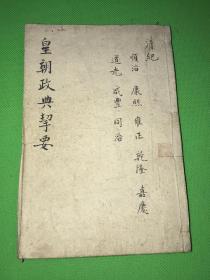 清纪
顺治 康熙 雍正 乾隆 嘉慶
道光 咸豐 同治
皇朝政典挈要